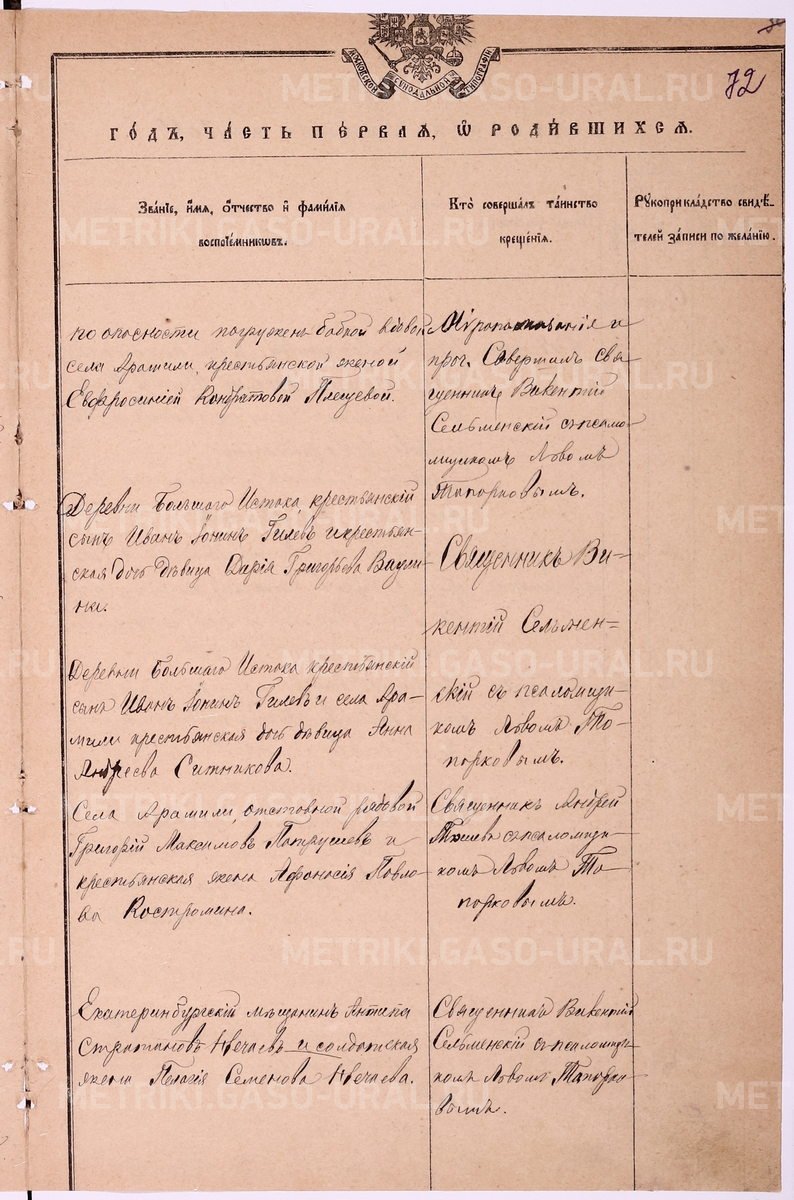 МОСКОВСКОЙ СѴНОДАЛЬНОЙ ТИПОГРАФІИ
72
ГО́ДЪ, ЧА́СТЬ ПЕ́РВАЯ, Ѡ҆ РОДИ́ВШИХСЯ.
Зва́нїе, и҆́мя, ѻ҆́тчество и҆ фами́лїя
воспрїе́мникѡвъ.
Кто̀ соверша́лъ та́инство
креще́нїя.
Рꙋкоприкла́дство свидѣ́-
телей за́писи по жела́нїю.
по опасности погружен бабкой вдовой
села Арамили, крестьянской женой
Евфросиніей Кондратовой Плещевой.
Мѵропомазанія и
проч. Совершилъ свя-
щенникъ Викентій
Сельменскій съ псало-
мщикомъ Львомъ
Топорковымъ.
Деревни Большаго Истока, крестьянскій
сынъ Иванъ Іонинъ Гилевъ и крестьян-
ская дочь дѣвица Дарія Григорьева
Священникъ Ви-
кентій Сельмен-
скій съ псаломщи-
комъ Львомъ То-
порковымъ.
Деревни Большаго Истока крестьянскій
сынъ Иванъ Іонинъ Гилевъ и села Ара-
мили крестьянская дочь дѣвица Анна
Андреева Ситникова.
Села Арамили, отставной рядовой
Григорій Максимовъ Патрушевъ и
крестьянская жена Афонасія Павло-
ва Костромина.
Священникъ Андрей
съ псаломщи-
комъ Львомъ То-
порковымъ.
Екатеринбургскій мѣщанинъ Антипа
Стратановъ Нечаевъ и солдатская
жена Пелагія Семенова Нечаева.
Священникъ Викентій
Сельменскій съ псаломщи-
комъ Львомъ Топорко-
вымъ.
METRIKI.GASO-URAL.RU